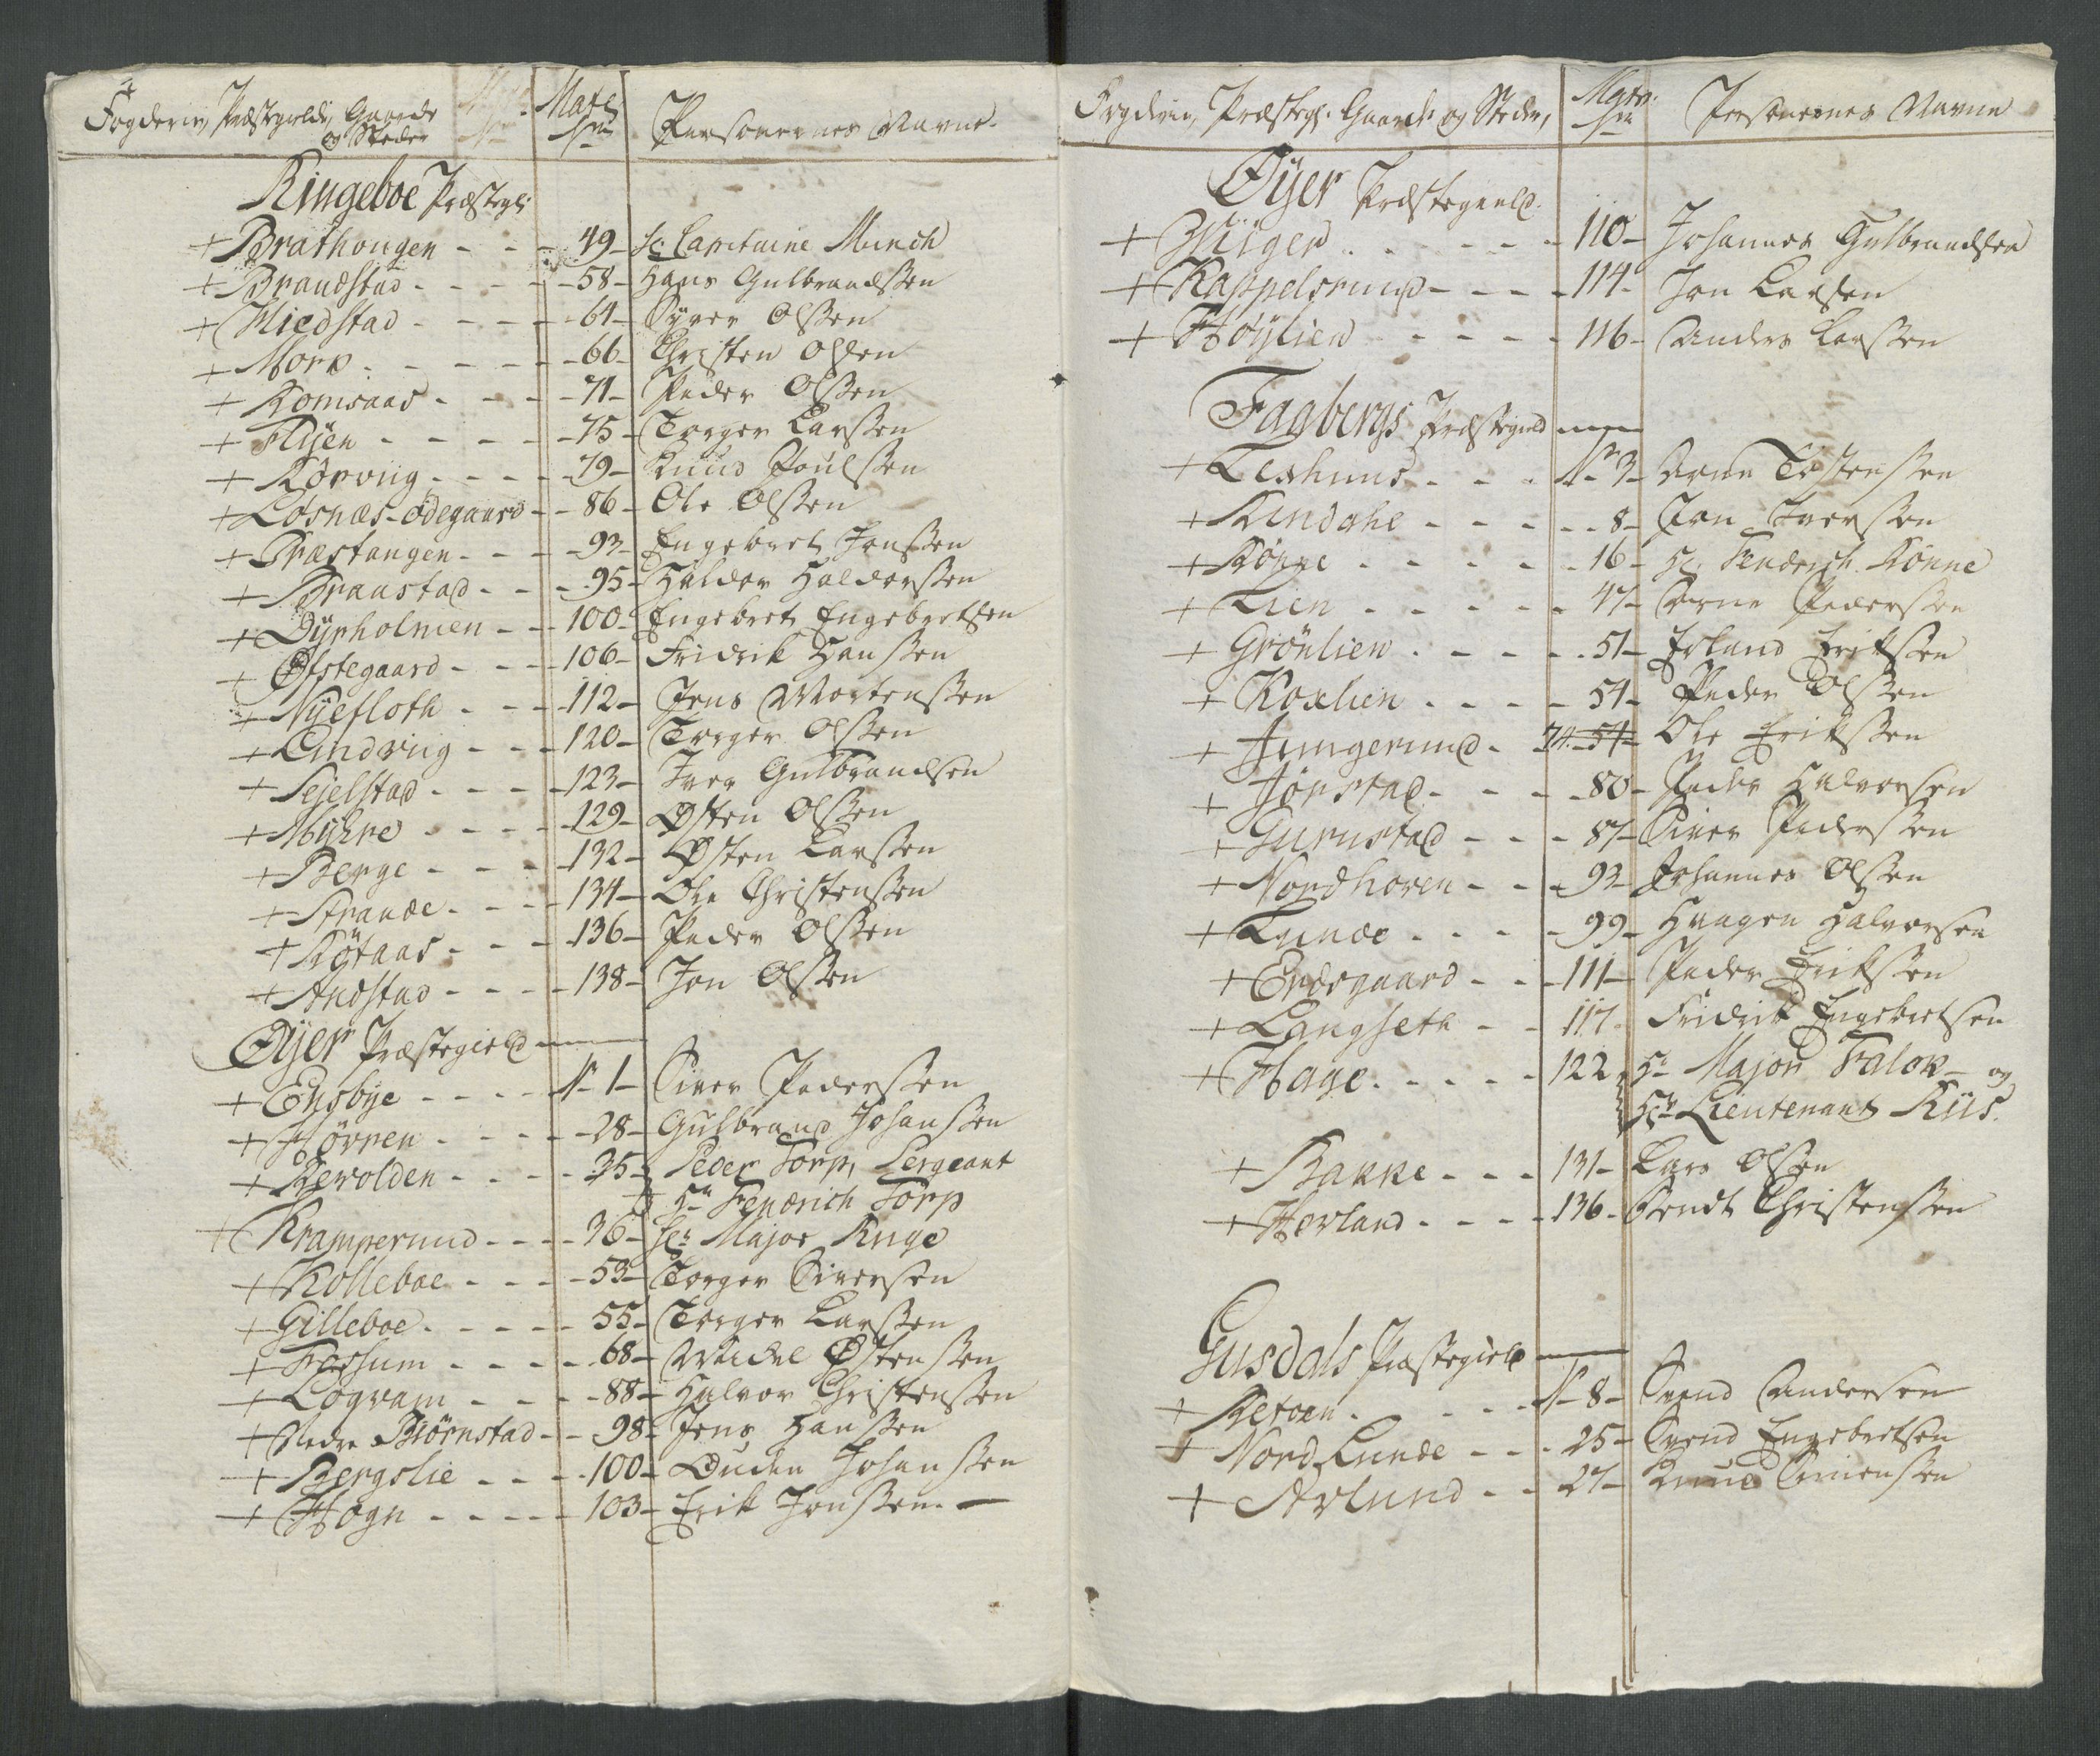 Fogderie, Præstegield, Gaarde Matr: Personernes Navne.
og Steder No
Ringeboe Præstegl:
+ Brathougen - - - 49 - Hr. Capitaine Munch
+ Brandstad - - - - 58 - Hans Gulbrandssen
+ Miedstad - - - - 61 - Syver Olssen
+ Morp - - - - - 66 - Christen Olssen
+ Romsaas - - - - 71 - Peder Olssen
+ Flyen - - - - 75 - Torger Larssen
+ Kørvng - - - - 79 - Knud Poulssen
+ Losnæs-ødegaard - - 86 - Ole Olssen
+ Præstangen - - - 93 - Engebret Jonssen
+ Braastad - - - 95 - Haldor Haldorssen
+ Dyrholmen - - 100 - Engebret Engebretsen
+ Øfstegaard - - - 106 - Fridrik Hanssen
+ Nyefloth - - - 112 - Jens Mortenssen
+ Lindviig - - - 120 - Torger Olssen
+ Sejelstad - - - 123 - Iver Gulbrandsen
+ Myhre - - - - 129 - Østen Olssen
+ Berge - - - - 132 - Østen Larssen
+ Strande - - - 134 - Ole Christenssen
+ Røtaas - - - 136 - Peder Olssen
+ Andstad - - - - 138 - Jon Olssen
Øyer Præstegield
+ Ensbye - - - - N. 1 - Siver Pederssen
+ Hørpen - - - - 28 - Gulbrand Johanssen
+ Revolden - - - - 35 - Peder Torp, Sergeant
+ Hr. Fendrich Torp
+ Kramperuud - - - 36 - Hr. Major Kruge
+ Kolleboe - - - - 53 - Torger Siversen
+ Gilleboe - - - - - 55 - Torger Larssen
+ Fossum - - - - 68 - Mikel Østenssen
+ Løgvam - - - - 88 - Halvor Christenssen
+ Nedre Biørnstad - - 98 - Jens Hanssen
+ Bergslie - - - - 100 - Ouden Johanssen
+ Hogn - - - - - 103 - Erik Jonssen. -
Fogderie, Præstegl. Gaarde og Steder, Matr. Personernes Navne
No
Øyer Præstegield.
+ - - - - - 110 - Johannes Gulbrandsen
+ Kappelsruud - - - - 114 - Jon Larsen
+ Høylien - - - - - 116 - Anders Larssen
Faabergs Præstegield
+ Leshuus - - - - N. 3 - Arne Tostenssen
+ Rindahl - - - - - 8 - Jon Iverssen
+ Rønne - - - - - 16 - Hr. Fendrich Rönne
+ Lien - - - - - 47 - Arne Pederssen
+ Grönlien - - - - - 51 - Erland Erikssen
+ Roxlien - - - - 54 - Peder Olssen
+ Jungeruud - 74. 54 - Ole Erikssen
+ Jørstad - - - - 80 - Peder Halvorsen
+ Gurustad - - - - 87 - Siver Pederssen
+ Nordhoven - - - 93 - Johannes Olssen
+ Lunde - - - - 99 - Haagen Halvorsen
+ Endregaard - - 111 - Peder Erikssen
+ Langseth - - 117. Fridrik Engebretsen
+ Hage - - - - - 122 - Hr. Major Falck - og
Hr. Lieutenant Riis.
+ Bakke - - - 131 - Lars Olssen
+ Horland - - - - 136 - Bendt Christenssen
Gusdals Præstegield
+ - - - N. 8 - Svend Andersen
+ Nord Lunde - - - 25 - Svend Engebretsen
+ Arlund - - 27 - Knud Simenssen